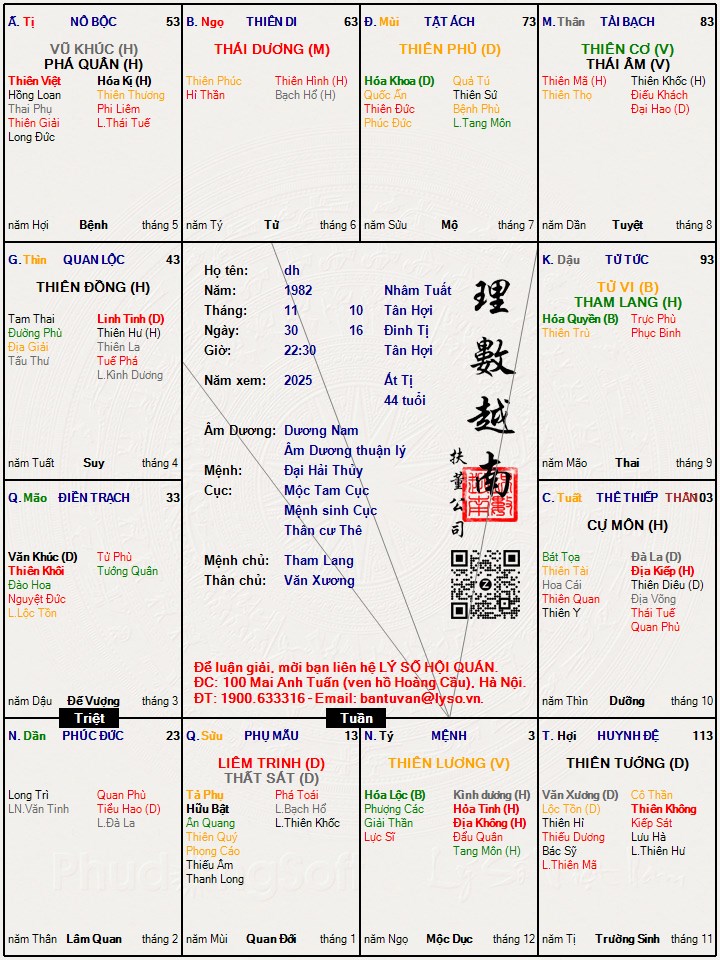 Ấ. Tị NÔ BỘC 53
VŨ KHÚC (H)
PHÁ QUÂN (H)
Thiên Việt Hóa Kị (H)
Hồng Loan Thiên Thương
Thai Phụ Phi Liêm
Thiên Giải L.Thái Tuế
Long Đức
năm Hợi Bệnh tháng 5
B. Ngọ THIÊN DI 63
THÁI DƯƠNG (M)
Thiên Phúc Thiên Hình (H)
Hỉ Thần Bạch Hổ (H)
năm Tý Tử tháng 6
Đ. Mùi TẬT ÁCH 73
THIÊN PHỦ (D)
Hóa Khoa (D) Quả Tú
Quốc Ấn Thiên Sứ
Thiên Đức Bệnh Phù
Phúc Đức L.Tang Môn
năm Sửu Mộ tháng 7
M. Thân TÀI BẠCH 83
THIÊN CƠ (V)
THÁI ÂM (V)
Thiên Mã (H) Thiên Khốc (H)
Thiên Thọ Điếu Khách
Đại Hao (D)
năm Dần Tuyệt tháng 8
G. Thìn QUAN LỘC 43
THIÊN ĐỒNG (H)
Tam Thai Linh Tinh (D)
Đường Phù Thiên Hư (H)
Địa Giải Thiên La
Tấu Thư Tuế Phá
L.Kình Dương
năm Tuất Suy tháng 4
Họ tên: dh
Năm: 1982 Nhâm Tuất
Tháng: 11 10 Tân Hợi
Ngày: 30 16 Đinh Tị
Giờ: 22:30 Tân Hợi
Năm xem: 2025 Ất Tị
44 tuổi
Âm Dương: Dương Nam
Âm Dương thuận lý
Mệnh: Đại Hải Thủy
Cục: Mộc Tam Cục
Mệnh sinh Cục
Thân cư Thê
Mệnh chủ: Tham Lang
Thân chủ: Văn Xương
理數越南
扶董公司
Để luận giải, mời bạn liên hệ LÝ SỐ HỘI QUÁN.
ĐC: 100 Mai Anh Tuấn (ven hồ Hoàng Cầu), Hà Nội.
ĐT: 1900.633316 - Email: bantuvan@lyso.vn.
K. Dậu TỬ TỨC 93
TỬ VI (B)
THAM LANG (H)
Hóa Quyền (B) Trực Phù
Thiên Trù Phục Binh
năm Mão Thai tháng 9
Q. Mão ĐIỀN TRẠCH 33
Văn Khúc (D) Tử Phù
Thiên Khôi Tướng Quân
Đào Hoa
Nguyệt Đức
L.Lộc Tồn
năm Dậu Đế Vượng tháng 3
C. Tuất THÊ THIẾP THÂN 103
CỰ MÔN (H)
Bát Tọa Đà La (D)
Thiên Tài Địa Kiếp (H)
Hoa Cái Thiên Diêu (D)
Thiên Quan Địa Võng
Thiên Y Thái Tuế
Quan Phủ
năm Thìn Dưỡng tháng 10
Triệt
Tuần
N. Dần PHÚC ĐỨC 23
Long Trì Quan Phù
LN.Văn Tinh Tiểu Hao (D)
L.Đà La
năm Thân Lâm Quan tháng 2
Q. Sửu PHỤ MẪU 13
LIÊM TRINH (D)
THẤT SÁT (D)
Tả Phụ Phá Toái
Hữu Bật L.Bạch Hổ
Ân Quang L.Thiên Khốc
Thiên Quý
Phong Cáo
Thiếu Âm
Thanh Long
năm Mùi Quan Đới tháng 1
N. Tý MỆNH 3
THIÊN LƯƠNG (V)
Hóa Lộc (B) Kình dương (H)
Phượng Các Hỏa Tinh (H)
Giải Thần Địa Không (H)
Lực Sĩ Đẩu Quân
Tang Môn (H)
năm Ngọ Mộc Dục tháng 12
T. Hợi HUYNH ĐỆ 113
THIÊN TƯỚNG (D)
Văn Xương (D) Cô Thần
Lộc Tồn (D) Thiên Không
Thiên Hỉ Kiếp Sát
Thiếu Dương Lưu Hà
Bác Sỹ L.Thiên Hư
L.Thiên Mã
năm Tị Trường Sinh tháng 11